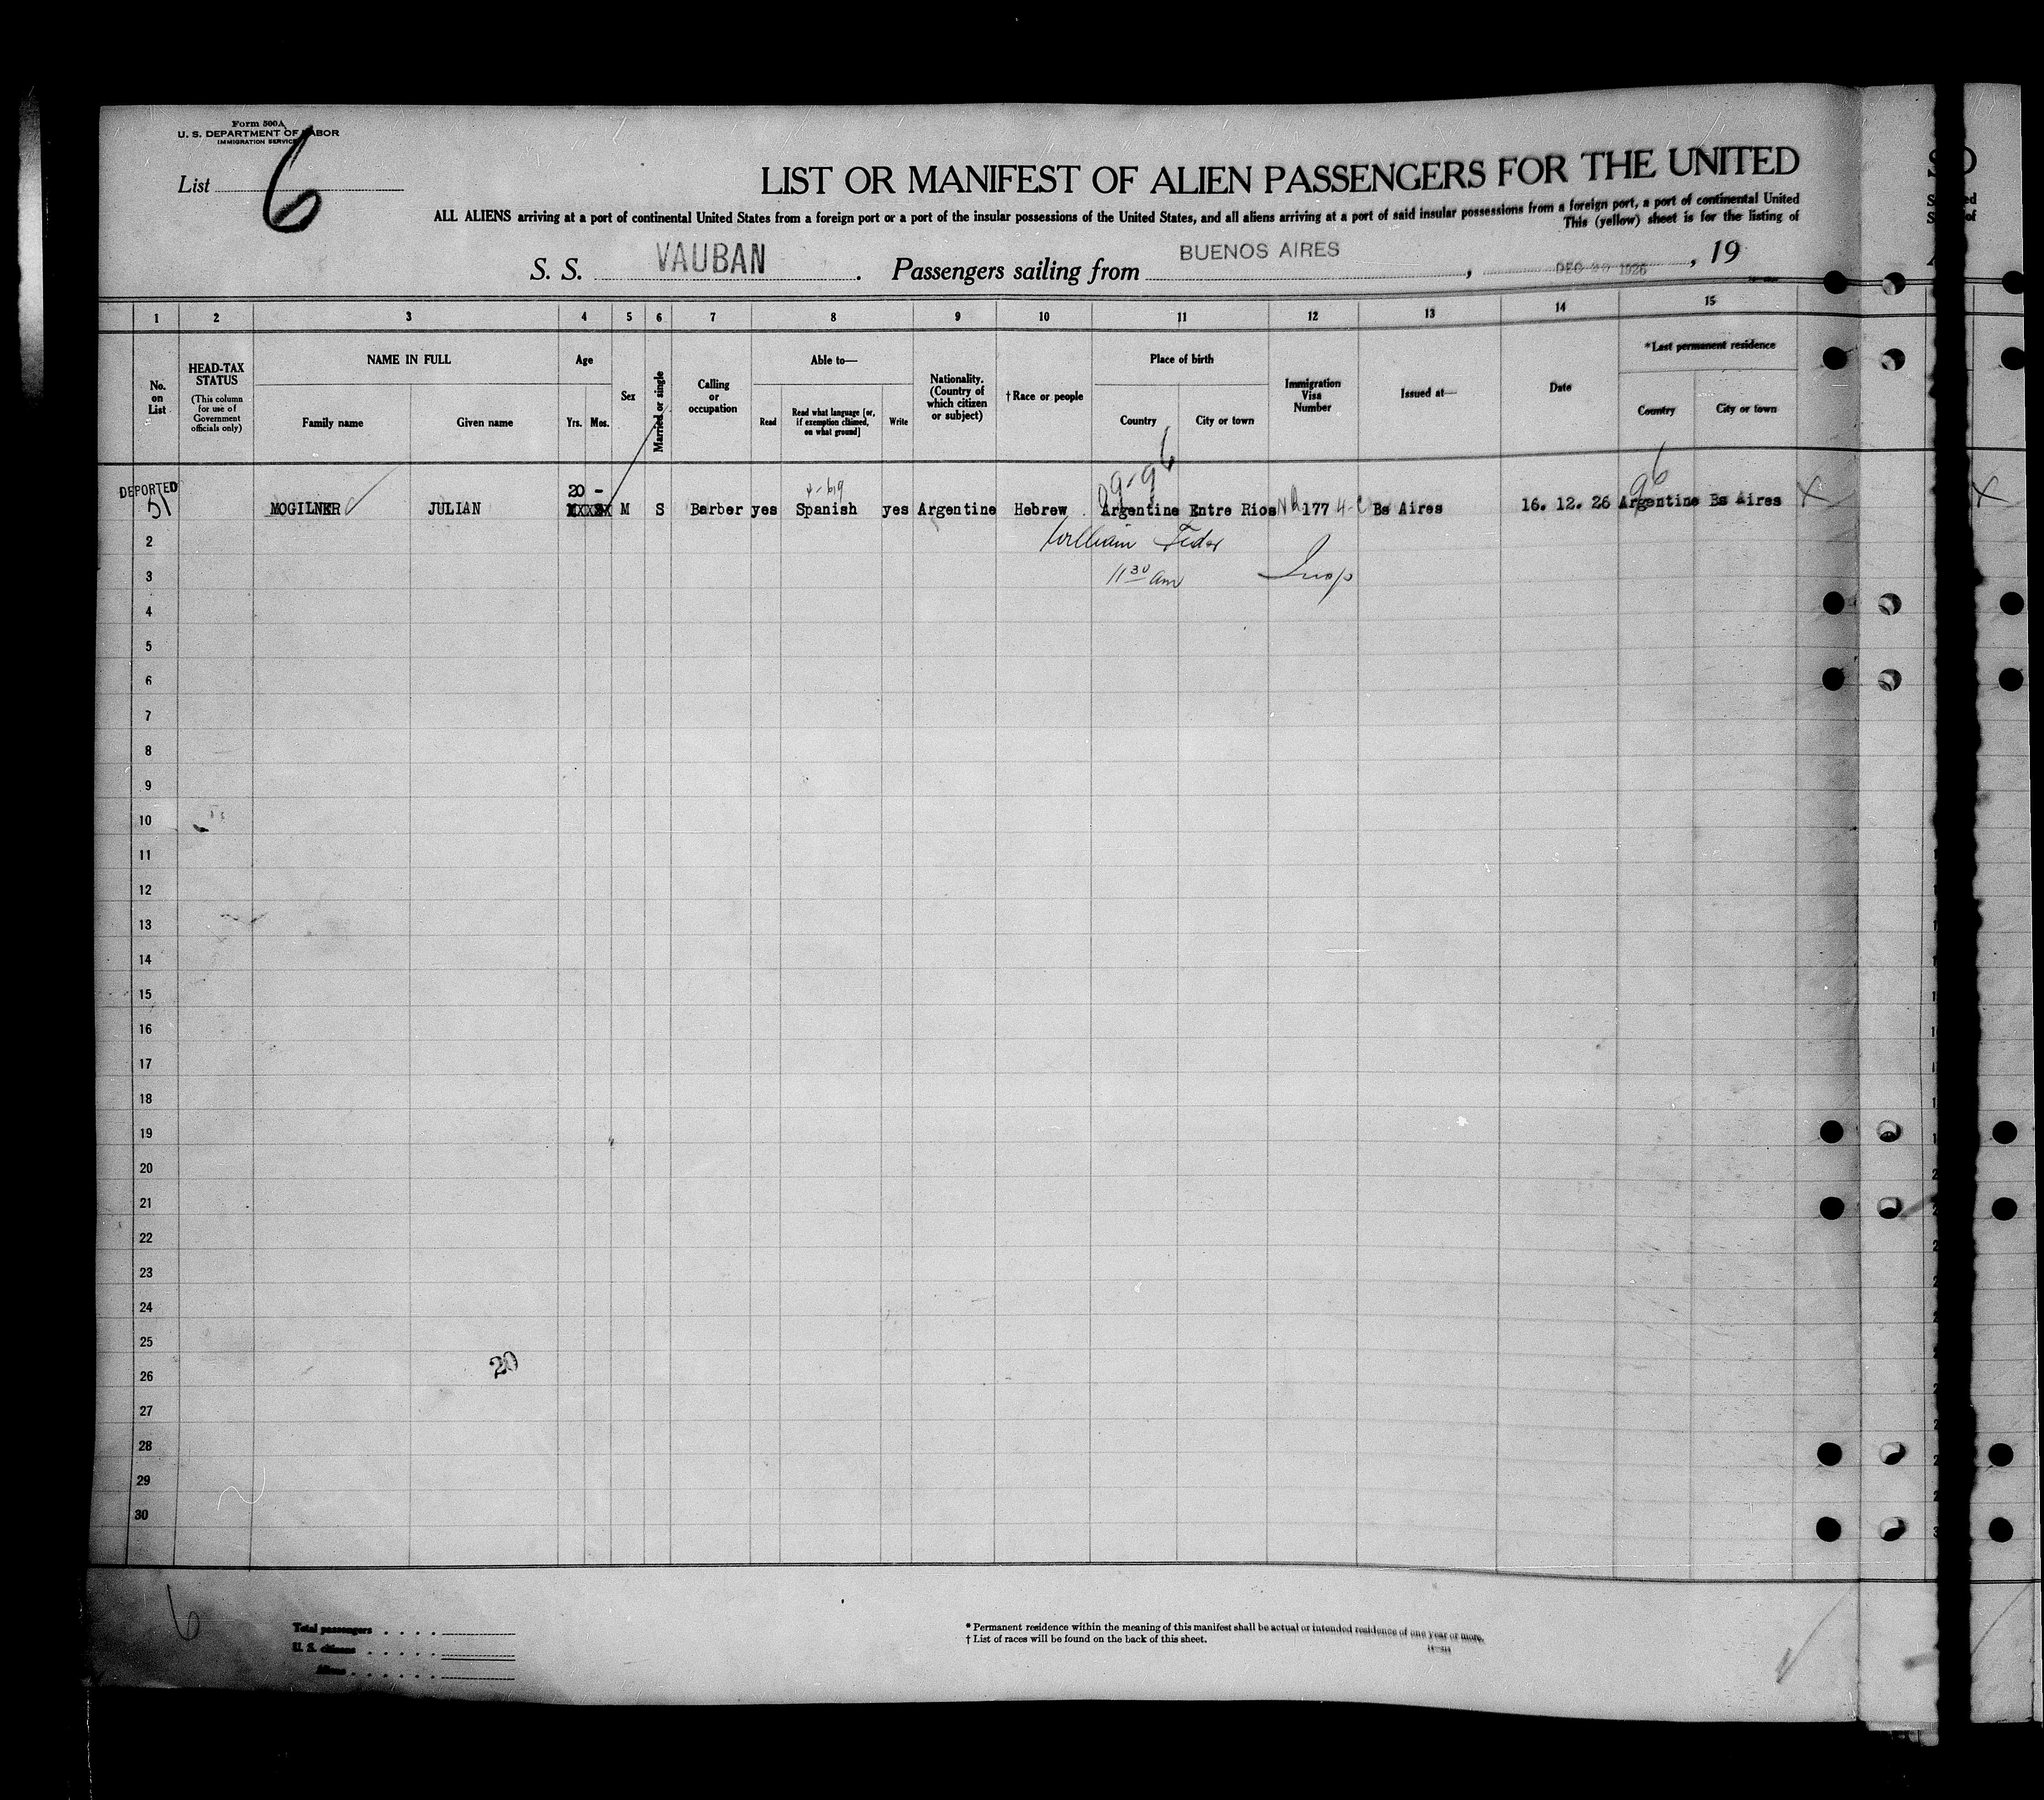 Form 500A
U. S. DEPARTMENT OF LABOR
IMMIGRATION SERVICE
List 6
LIST OR MANIFEST OF ALIEN PASSENGERS FOR THE UNITED
ALL ALIENS arriving at a port of continental United States from a foreign port or a port of the insular possessions of the United States, and all aliens arriving at a port of said insular possessions from a foreign port, a port of continental United
This (yellow) sheet is for the listing of
S. S. VAUBAN . Passengers sailing from BUENOS AIRES , DEC 1926 , 19
1 2 3 4 5 6 7 8 9 10 11 12 13 14 15
No. on List
HEAD-TAX STATUS
(This column for use of Government officials only)
NAME IN FULL
Family name Given name
Age
Yrs. Mos.
Sex
Married or single
Calling or occupation
Able to—
Read
Read what language [or, if exemption claimed, on what ground]
Write
Nationality. (Country of which citizen or subject)
† Race or people
Place of birth
Country City or town
Immigration Visa Number
Issued at—
Date
*Last permanent residence
Country City or town
DEPORTED
20 -
MOGILNER JULIAN M S Barber yes Spanish yes Argentine Hebrew Argentine Entre Rios 177 Bs Aires 16. 12. 26 Argentine Bs Aires X
2 William
3 11 30 am Insp
4
5
6
7
8
9
10
11
12
13
14
15
16
17
18
19
20
21
22
23
24
25
20
26
27
28
29
30
6
Total passengers
U. S. citizens
Aliens
* Permanent residence within the meaning of this manifest shall be actual or intended residence of one year or more.
† List of races will be found on the back of this sheet.